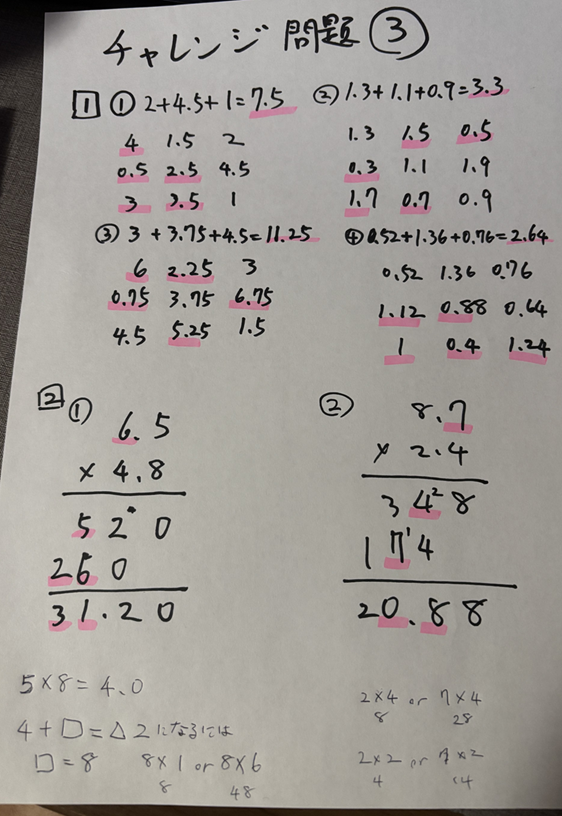 チャレンジ問題③
1 ① 2+4.5+1=7.5 ② 1.3+1.1+0.9=3.3
4 1.5 2 1.3 1.5 0.5
0.5 2.5 4.5 0.3 1.1 1.9
3 3.5 1 1.7 0.7 0.9
③ 3+3.75+4.5=11.25 ④ 0.52+1.36+0.76=2.64
6 2.25 3 0.52 1.36 0.76
0.75 3.75 6.75 1.12 0.88 0.64
4.5 5.25 1.5 1 0.4 1.24
2 ① ②
6.5 8.7
× 4.8 × 2.4
520 34²8
260 17¹4
31.20 20.88
5×8=4.0 2×4 or 7×4
8 28
4+□=△2になるには
□=8 8×1 or 8×6 2×2 or 7×2
8 48 4 14